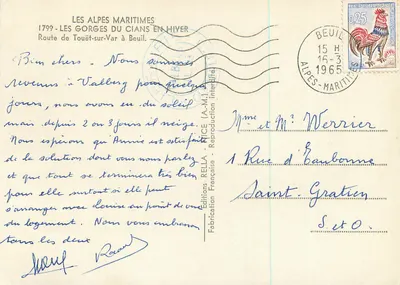 LES ALPES MARITIMES
1799 - LES GORGES DU CIANS EN HIVER
Route de Touët-sur-Var à Beuil.
Bien chers - Nous sommes
revenus à Valberg pour quelques
jours, nous avons eu du soleil
mais depuis 2 ou 3 jours il neige.
Nous espérons qu'Annie est satisfaite
de la solution dont vous nous parlez
et que tout se terminera très bien
pour elle surtout si elle peut
s'arranger avec Louise au point de vue
du logement. Nous vous embrassons
tous les deux
Editions RELLA, NICE (A.-M.)
Fabrication Française - Reproduction interdite
BEUIL
15 H
16-3
1965
ALPES-MARITIMES
0,25
Mme et Mr Werrier
1 Rue d'Eaubonne
Saint-Gratien
S et O